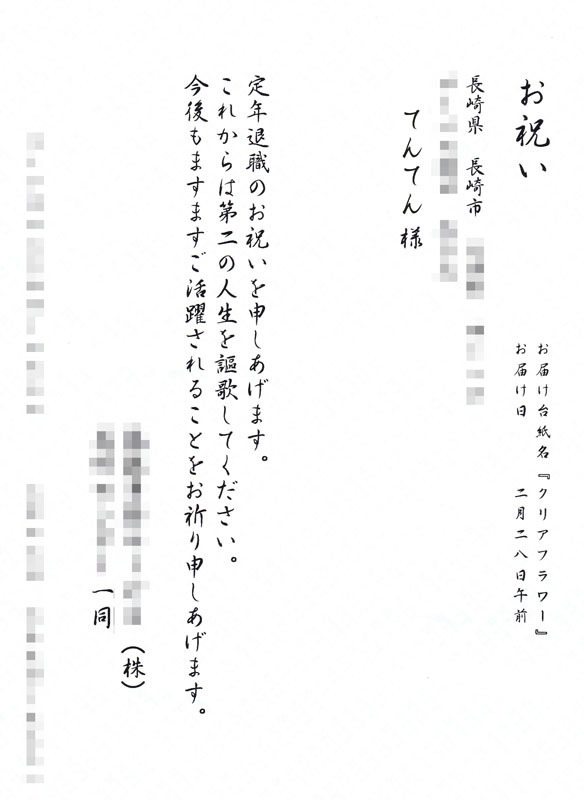 お祝い
お届け台紙名『クリアフラワー』
お届け日　二月二八日午前
長崎県　長崎市
てんてん様
定年退職のお祝いを申しあげます。
これからは第二の人生を謳歌してください。
今後もますますご活躍されることをお祈り申しあげます。
（株）
一同